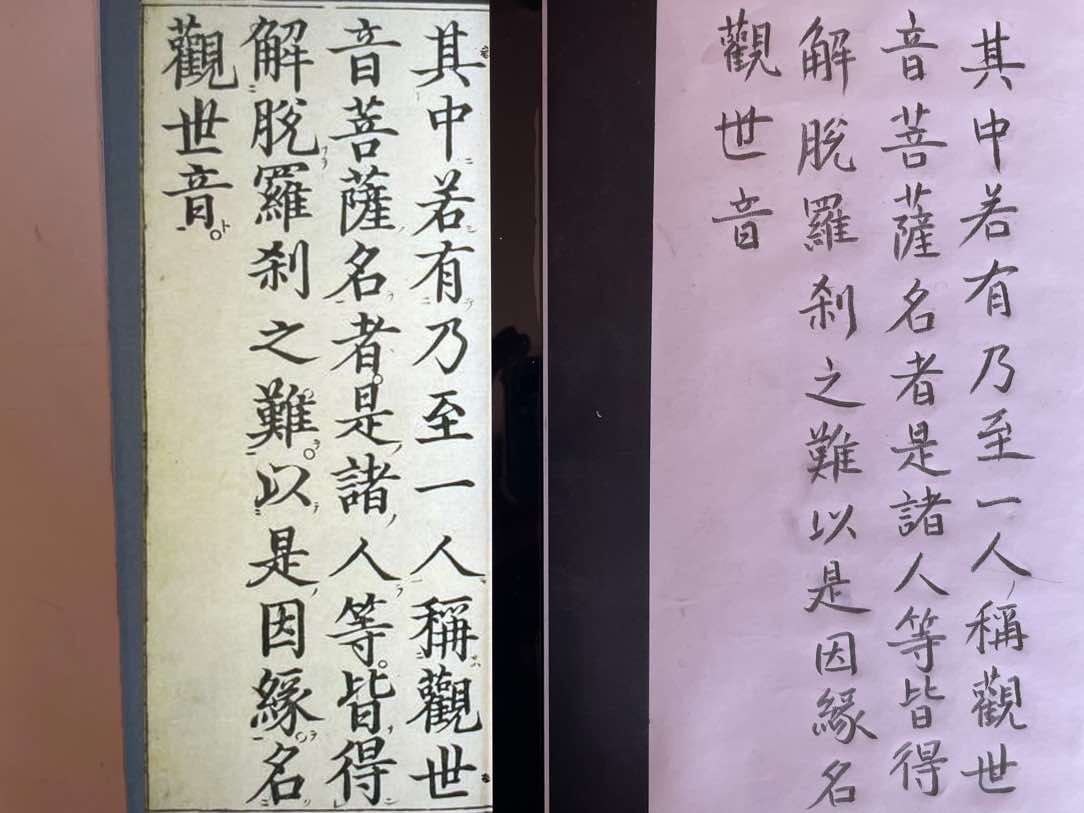 其中若有乃至一人稱觀世
音菩薩名者是諸人等皆得
解脫羅刹之難以是因緣名
觀世音
其中若有乃至一人，稱觀世
音菩薩名者是諸人等皆得
解脫羅刹之難以是因緣名
觀世音